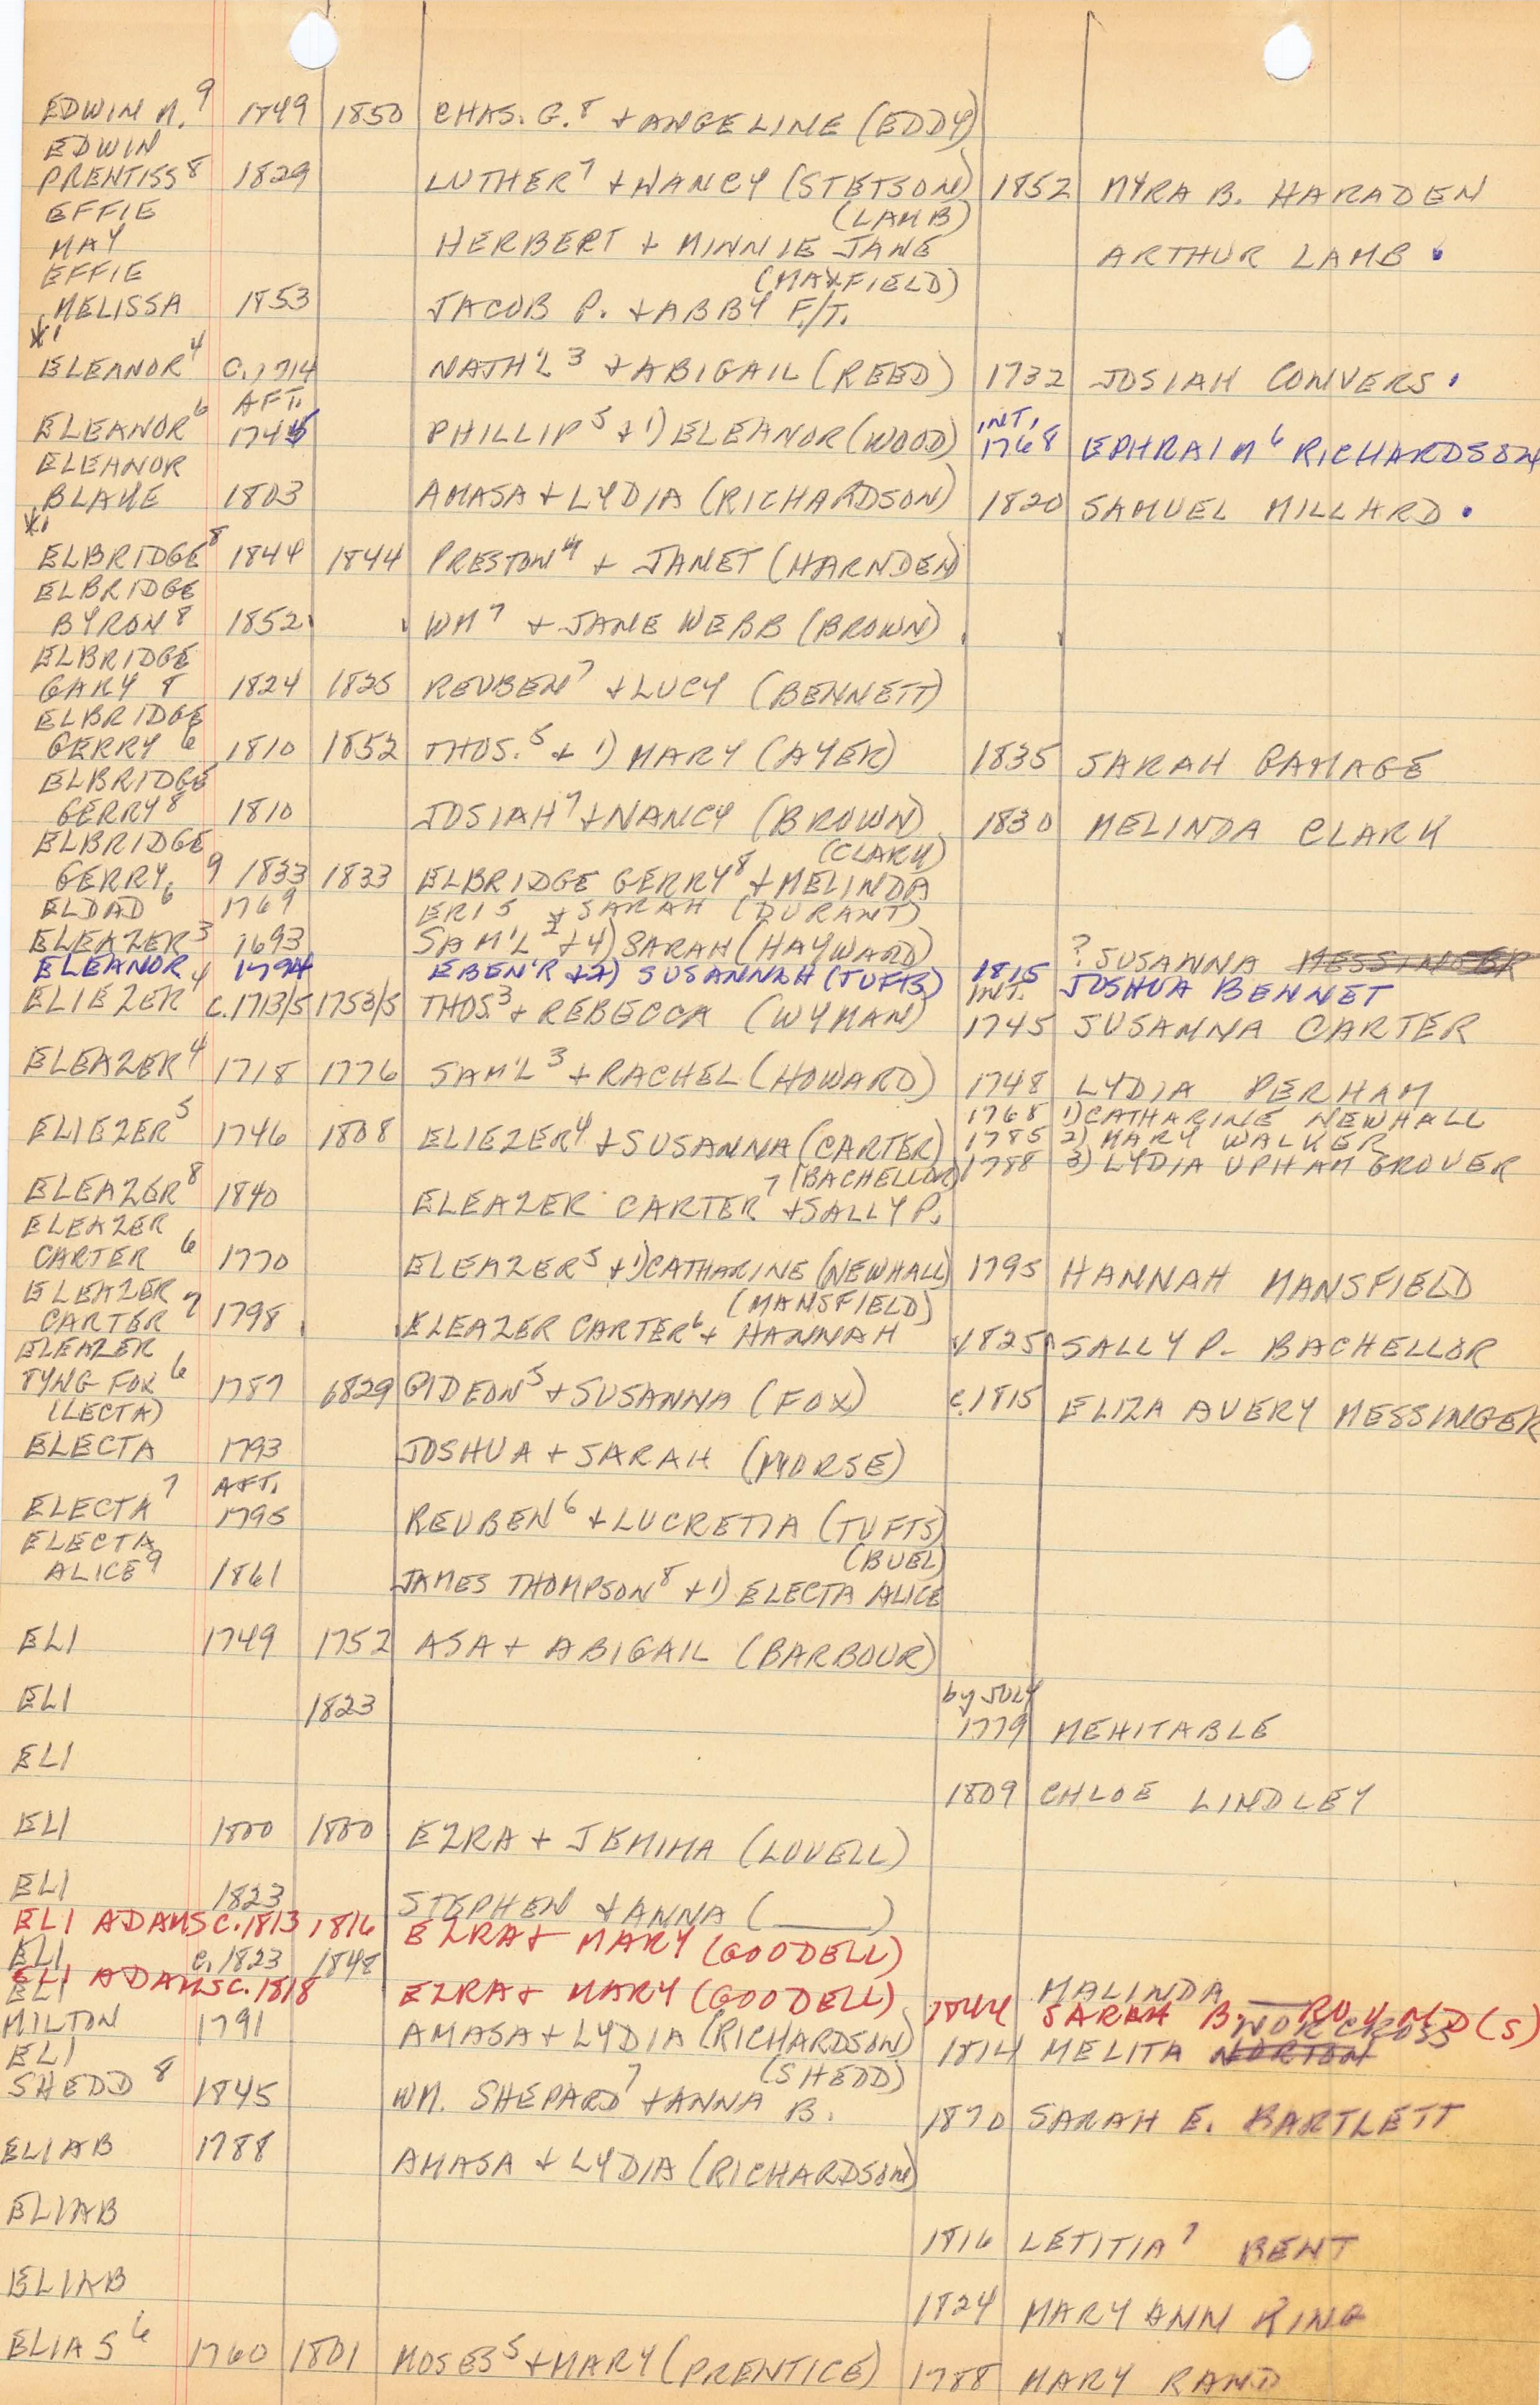 EDWIN M.⁹ 1849 1850 CHAS. G.⁸ + ANGELINE (EDDY)
EDWIN
PRENTISS⁸ 1829 LUTHER⁷ + NANCY (STETSON) 1852 MYRA B. HARADEN
EFFIE (LAMB)
MAY HERBERT + MINNIE JANE ARTHUR LAMB .
EFFIE (MAXFIELD)
MELISSA 1853 JACOB P. + ABBY F./T.
ELEANOR⁴ C. 1714 NATH'L³ + ABIGAIL (REED) 1732 JOSIAH CONVERS .
AFT. INT.
ELEANOR⁶ 1745 PHILLIP⁵ + 1) ELEANOR (WOOD) 1768 EPHRAIM⁶ RICHARDSON
ELEANOR
BLAKE 1803 AMASA + LYDIA (RICHARDSON) 1820 SAMUEL MILLARD .
ELBRIDGE⁸ 1844 1844 PRESTON + JANET (HARNDEN)
ELBRIDGE
BYRON⁸ 1852 WM⁷ + JANE WEBB (BROWN)
ELBRIDGE
GARY 8 1824 1825 REUBEN⁷ + LUCY (BENNETT)
ELBRIDGE
GERRY 6 1810 1852 THOS.⁵ + 1) MARY (AYER) 1835 SARAH GAMAGE
ELBRIDGE
GERRY⁸ 1810 JOSIAH⁷ + NANCY (BROWN) 1830 MELINDA CLARK
ELBRIDGE (CLARK)
GERRY 9 1833 1833 ELBRIDGE GERRY⁸ + MELINDA
ELDAD⁶ 1769 ERI 5 + SARAH (DURANT)
ELEAZER³ 1693 SAM'L² + 4) SARAH (HAYWARD) ? SUSANNA MESSINGER
ELEANOR 1794 EBEN'R + 2) SUSANNAH (TUFTS) 1815 JOSHUA BENNET
INT.
ELIEZER⁴ C. 1713/5 1753/5 THOS.³ + REBECCA (WYMAN) 1745 SUSANNA CARTER
ELEAZER⁴ 1718 1776 SAM'L³ + RACHEL (HOWARD) 1748 LYDIA PERHAM
1768 1) CATHARINE NEWHALL
ELIEZER⁵ 1746 1808 ELIEZER⁴ + SUSANNA (CARTER) 1785 2) MARY WALKER
(BACHELLOR) 1788 3) LYDIA UPHAM GROVER
ELEAZER⁸ 1840 ELEAZER CARTER⁷ + SALLY P.
ELEAZER
CARTER 6 1770 ELEAZER⁵ + 1) CATHARINE (NEWHALL) 1795 HANNAH MANSFIELD
ELEAZER (MANSFIELD)
CARTER 7 1798 ELEAZER CARTER⁶ + HANNAH 1825 SALLY P. BACHELLOR
ELEAZER
TYNG FOX⁶ 1787 1829 GIDEON⁵ + SUSANNA (FOX) C. 1815 ELIZA AVERY MESSINGER
(LECTA)
ELECTA 1793 JOSHUA + SARAH (MORSE)
AFT.
ELECTA⁷ 1795 REUBEN⁶ + LUCRETIA (TUFTS)
ELECTA (BUEL)
ALICE⁹ 1861 JAMES THOMPSON⁸ + 1) ELECTA ALICE
ELI 1749 1752 ASA + ABIGAIL (BARBOUR)
ELI 1823 by JULY
1779 MEHITABLE
ELI
1809 CHLOE LINDLEY
ELI 1800 1800 EZRA + JEMIMA (LOVELL)
ELI 1823 STEPHEN + ANNA (____)
ELI ADAMS C. 1813 1816 EZRA + MARY (GOODELL)
ELI C. 1823 1848 MALINDA ____
ELI ADAMS C. 1818 EZRA + MARY (GOODELL) 1844 SARAH B. ROUND(S)
ELI NORCROSS
MILTON 1791 AMASA + LYDIA (RICHARDSON) 1814 MELITA NORTON
ELI (SHEDD)
SHEDD 8 1845 WM. SHEPARD⁷ + ANNA B. 1870 SARAH E. BARTLETT
ELIAB 1788 AMASA + LYDIA (RICHARDSON)
ELIAB
1816 LETITIA⁷ KENT
ELIAB
1824 MARY ANN RING
ELIAS⁶ 1760 1801 MOSES⁵ + MARY (PRENTICE) 1788 MARY RAND